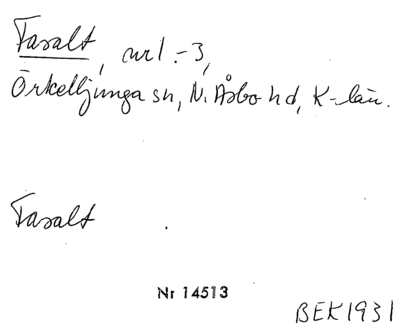 Faxalt, nr 1.-3,
Örkelljunga sn, N. Åsbo hd, K-län.
Faxalt
Nr 14513
BEK 1931